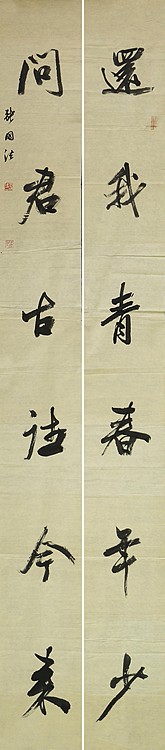 還我青春年少
問君古往今來